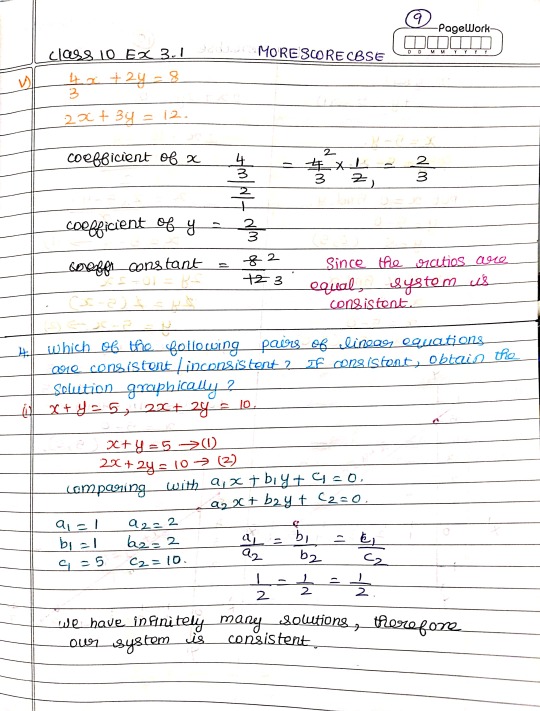 9
PageWork
D D M M Y Y Y Y
Class 10 Ex 3.1 MORESCORECBSE
v) 4/3 x + 2y = 8
2x + 3y = 12.
coefficient of x 4/3 / 2/1 = 4 2/3 × 1/2 1 = 2/3
coefficient of y = 2/3
coeff constant = 8 2/12 3. Since the ratios are
equal, system is
consistent.
4. Which of the following pairs of linear equations
are consistent/inconsistent? If consistent, obtain the
solution graphically?
(i) x + y = 5, 2x + 2y = 10.
x + y = 5 → (1)
2x + 2y = 10 → (2)
comparing with a₁x + b₁y + c₁ = 0.
a₂x + b₂y + c₂ = 0.
a₁ = 1 a₂ = 2
b₁ = 1 b₂ = 2 a₁/a₂ = b₁/b₂ = c₁/c₂
c₁ = 5 c₂ = 10.
1/2 = 1/2 = 1/2.
We have infinitely many solutions, therefore
our system is consistent.